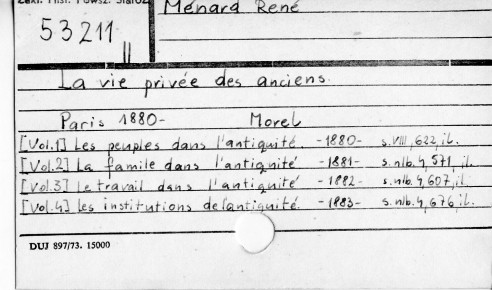 Zakł. Hist. Powsz. Staroż.
Ménard René
53211
II
La vie privée des anciens.
Paris 1880- Morel
[Vol.1] Les peuples dans l'antiquité -1880- s. VIII, 622, il.
[Vol.2] La famile dans l'antiquité -1881- s. nlb. 4, 571, il.
[Vol.3] Le travail dans l'antiquité -1882- s. nlb. 4, 607, il.
[Vol.4] Les institutions de l'antiquité -1883- s. nlb. 4, 676, il.
DUJ 897/73. 15000